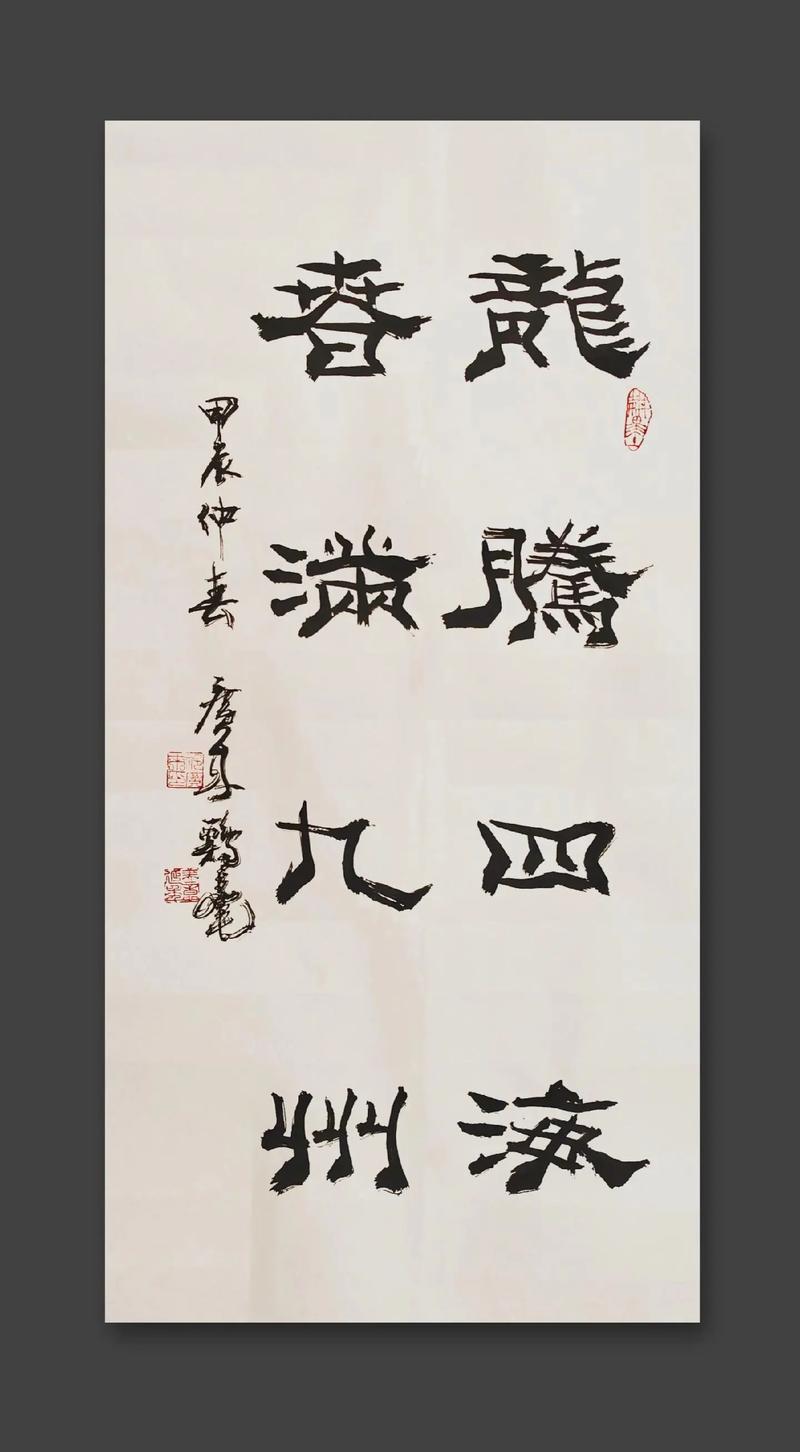 龍騰四海
春滿九州
甲辰仲春